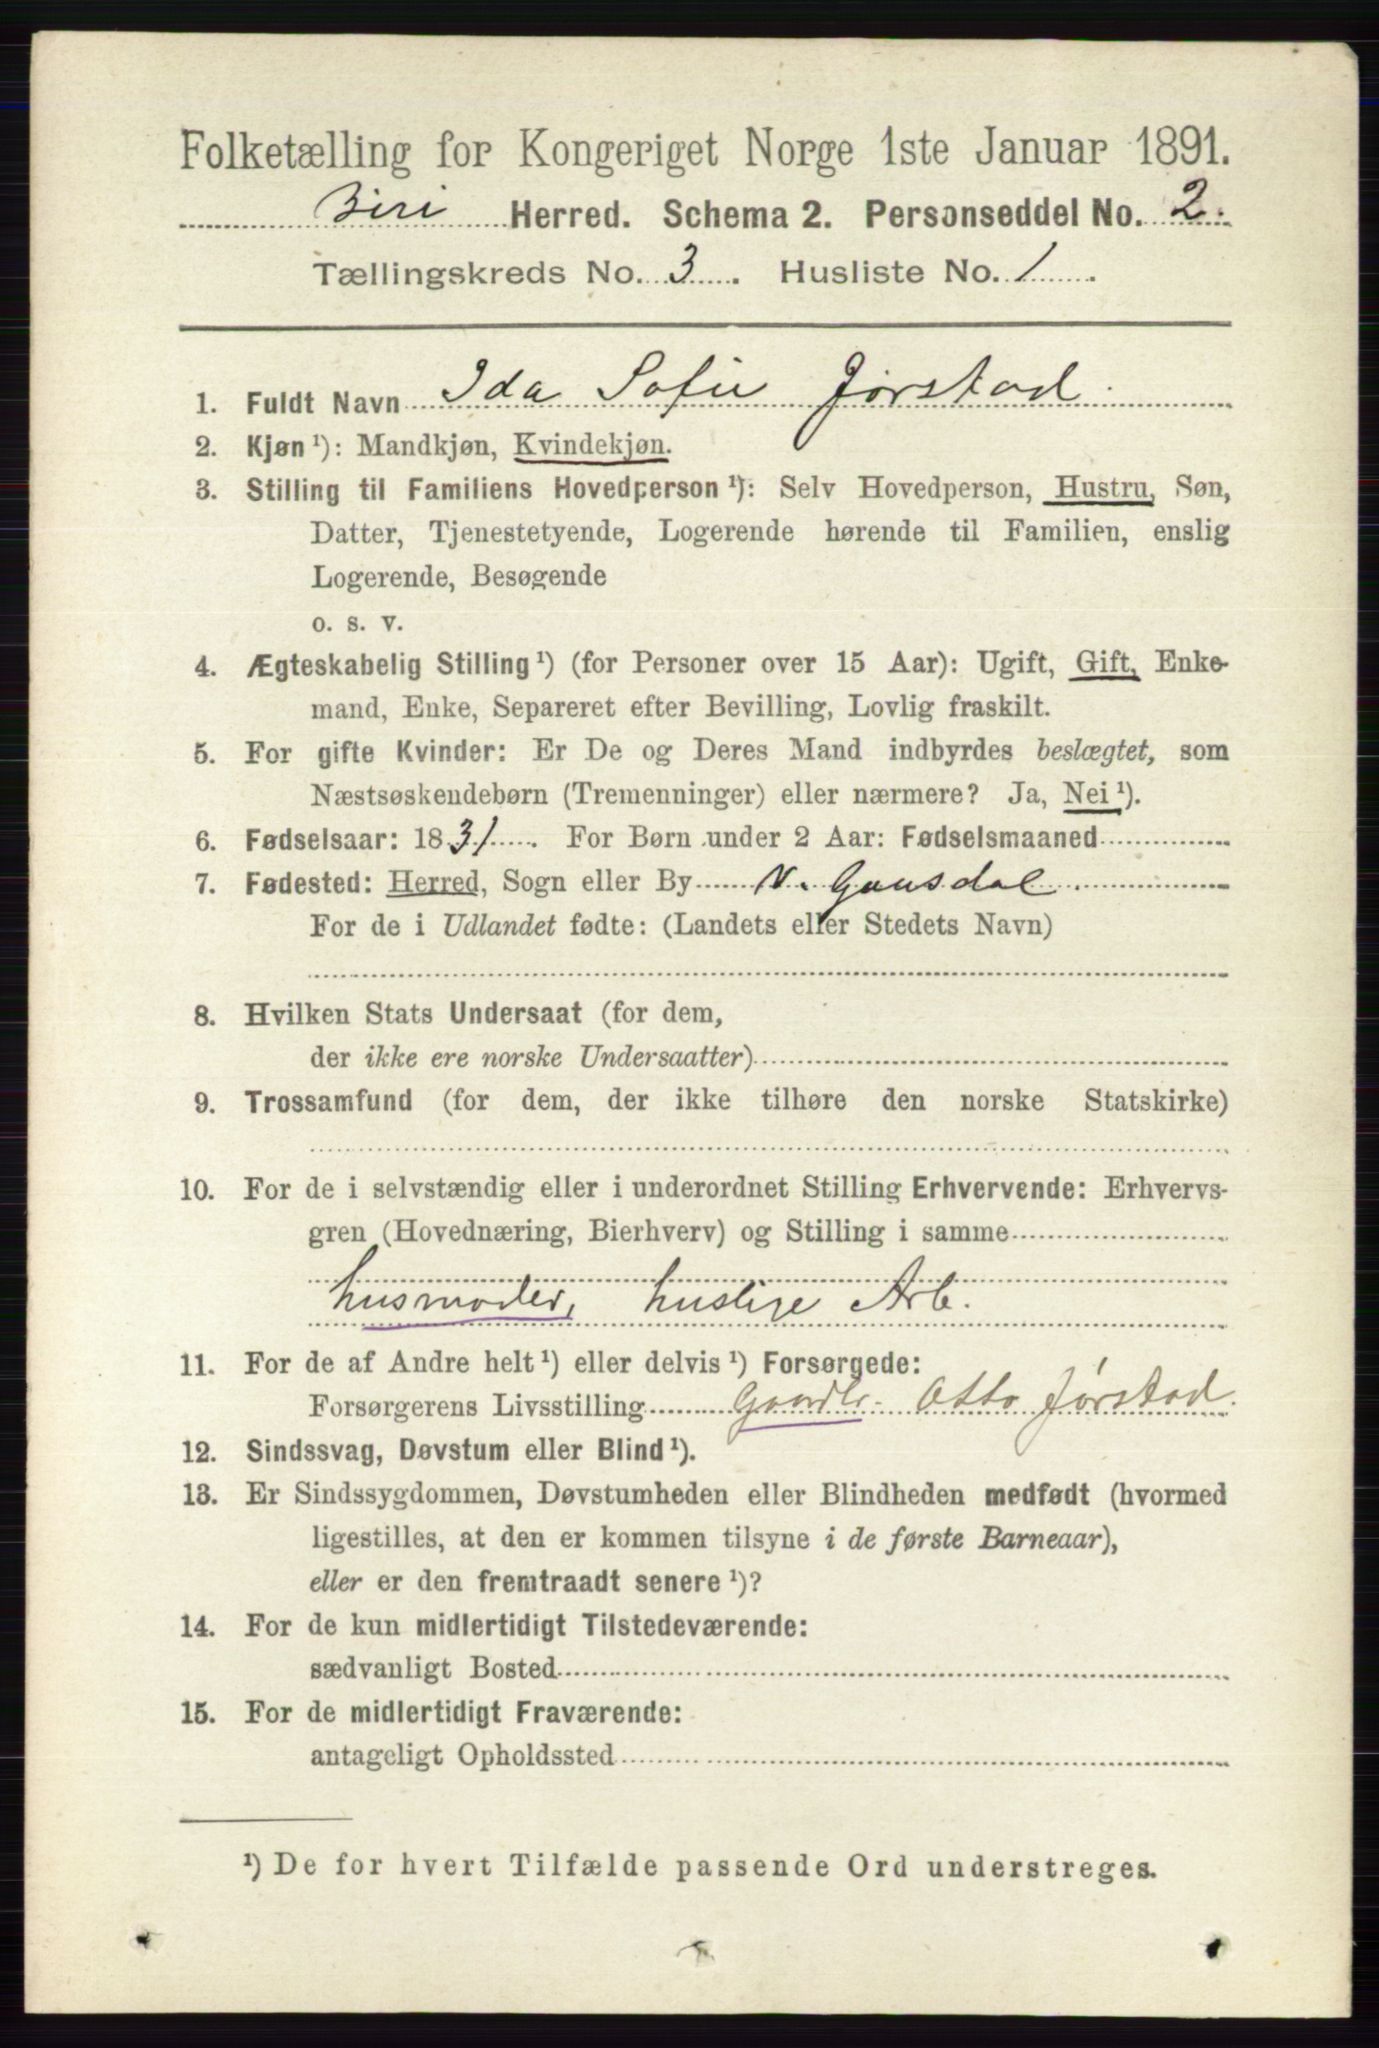 Folketælling for Kongeriget Norge 1ste Januar 1891.
Biri Herred. Schema 2. Personseddel No. 2.
Tællingskreds No. 3. Husliste No. 1.
1. Fuldt Navn Ida Sofie Jørstad.
2. Kjøn ¹): Mandkjøn, Kvindekjøn.
3. Stilling til Familiens Hovedperson ¹): Selv Hovedperson, Hustru, Søn,
Datter, Tjenestetyende, Logerende hørende til Familien, enslig
Logerende, Besøgende
o. s. v.
4. Ægteskabelig Stilling ¹) (for Personer over 15 Aar): Ugift, Gift, Enke-
mand, Enke, Separeret efter Bevilling, Lovlig fraskilt.
5. For gifte Kvinder: Er De og Deres Mand indbyrdes beslægtet, som
Næstsøskendebørn (Tremenninger) eller nærmere? Ja, Nei ¹).
6. Fødselsaar: 1831. For Børn under 2 Aar: Fødselsmaaned
7. Fødested: Herred, Sogn eller By V. Gausdal.
For de i Udlandet fødte: (Landets eller Stedets Navn)
8. Hvilken Stats Undersaat (for dem,
der ikke ere norske Undersaatter)
9. Trossamfund (for dem, der ikke tilhøre den norske Statskirke)
10. For de i selvstændig eller i underordnet Stilling Erhvervende: Erhvervs-
gren (Hovednæring, Bierhverv) og Stilling i samme
husmoder, huslige Arb.
11. For de af Andre helt ¹) eller delvis ¹) Forsørgede:
Forsørgerens Livsstilling Gaardbr. Otto Jørstad.
12. Sindssvag, Døvstum eller Blind ¹).
13. Er Sindssygdommen, Døvstumheden eller Blindheden medfødt (hvormed
ligestilles, at den er kommen tilsyne i de første Barneaar),
eller er den fremtraadt senere ¹)?
14. For de kun midlertidigt Tilstedeværende:
sædvanligt Bosted
15. For de midlertidigt Fraværende:
antageligt Opholdssted
¹) De for hvert Tilfælde passende Ord understreges.